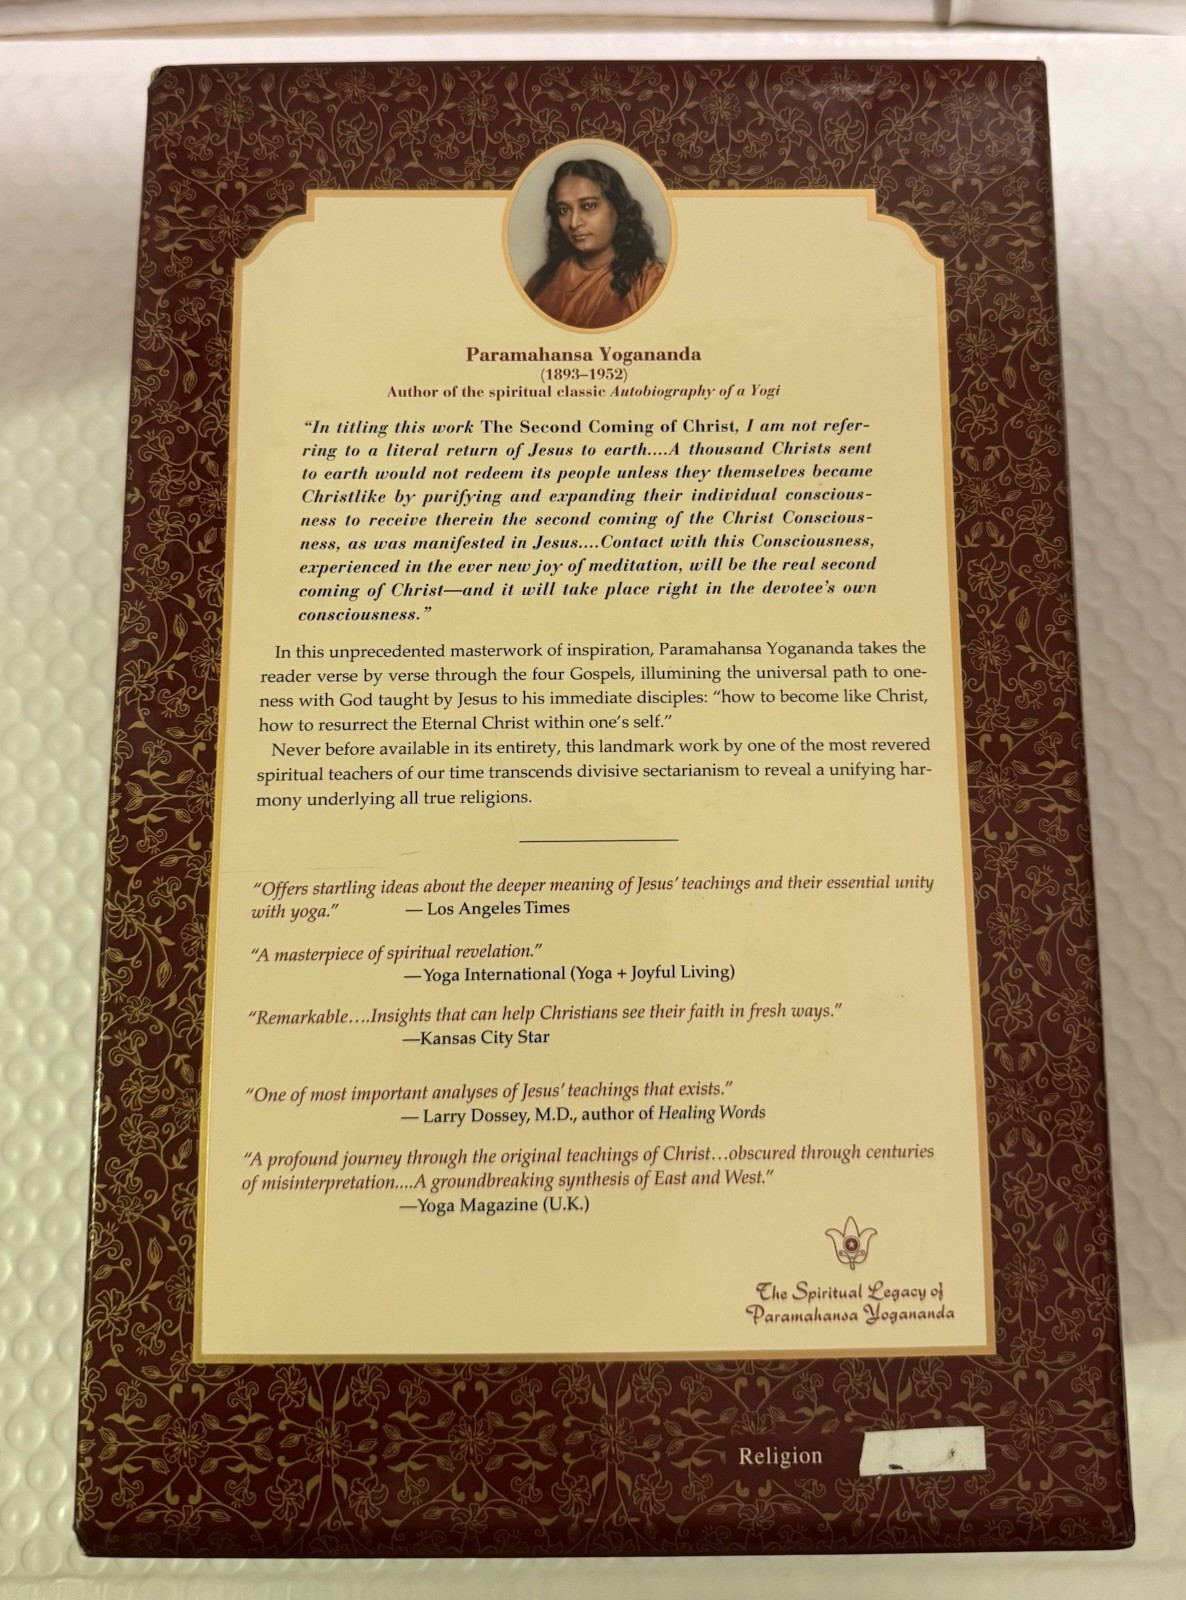 Paramahansa Yogananda
(1893–1952)
Author of the spiritual classic Autobiography of a Yogi
“In titling this work The Second Coming of Christ, I am not refer-
ring to a literal return of Jesus to earth....A thousand Christs sent
to earth would not redeem its people unless they themselves became
Christlike by purifying and expanding their individual conscious-
ness to receive therein the second coming of the Christ Conscious-
ness, as was manifested in Jesus....Contact with this Consciousness,
experienced in the ever new joy of meditation, will be the real second
coming of Christ—and it will take place right in the devotee’s own
consciousness.”
In this unprecedented masterwork of inspiration, Paramahansa Yogananda takes the
reader verse by verse through the four Gospels, illumining the universal path to one-
ness with God taught by Jesus to his immediate disciples: “how to become like Christ,
how to resurrect the Eternal Christ within one’s self.”
Never before available in its entirety, this landmark work by one of the most revered
spiritual teachers of our time transcends divisive sectarianism to reveal a unifying har-
mony underlying all true religions.
“Offers startling ideas about the deeper meaning of Jesus’ teachings and their essential unity
with yoga.” — Los Angeles Times
“A masterpiece of spiritual revelation.”
—Yoga International (Yoga + Joyful Living)
“Remarkable….Insights that can help Christians see their faith in fresh ways.”
—Kansas City Star
“One of most important analyses of Jesus’ teachings that exists.”
— Larry Dossey, M.D., author of Healing Words
“A profound journey through the original teachings of Christ…obscured through centuries
of misinterpretation....A groundbreaking synthesis of East and West.”
—Yoga Magazine (U.K.)
The Spiritual Legacy of
Paramahansa Yogananda
Religion